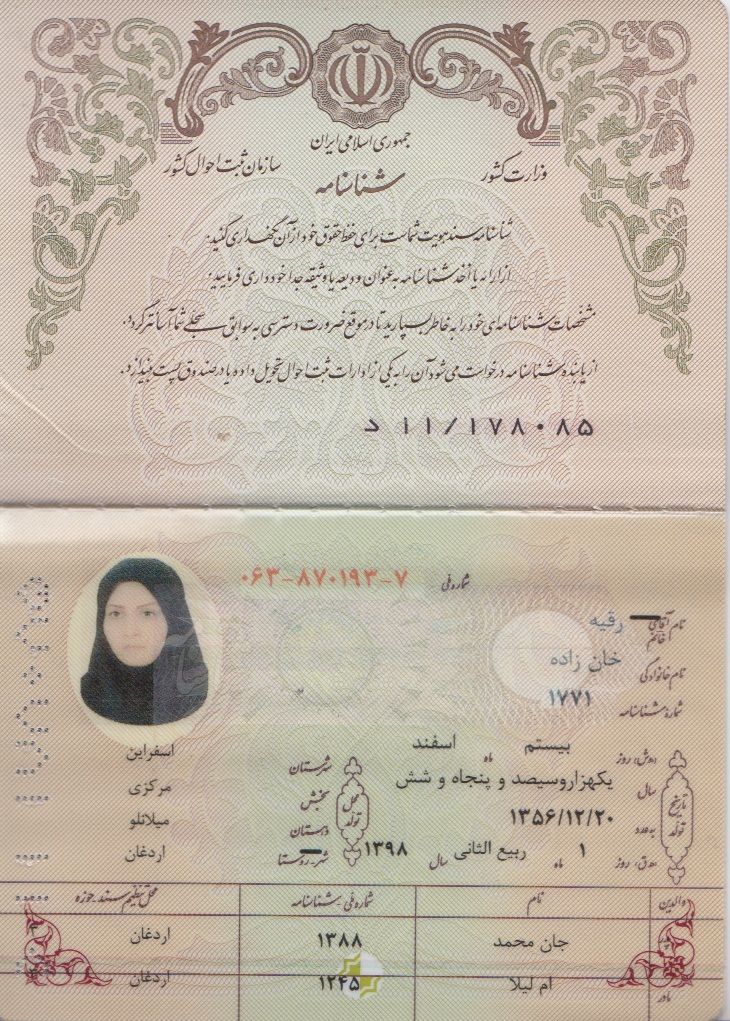 جمهوری اسلامی ایران
وزارت کشور
سازمان ثبت احوال کشور
شناسنامه
شناسنامه سند هویت شماست برای حفظ حقوق خود از آن نگهداری کنید.
از ارائه یا اخذ شناسنامه به عنوان ودیعه یا وثیقه جدا خودداری فرمایید.
مشخصات شناسنامه‌ای خود را به خاطر بسپارید تا در موقع ضرورت دسترسی به سوابق سجلی شما آسانتر گردد.
از یابنده شناسنامه درخواست می‌شود آن را به یکی از ادارات ثبت احوال تحویل داده یا در صندوق پست بیندازد.
د ۱۱/۱۷۸۰۸۵
شماره ملی ۰۶۳-۸۷۰۱۹۳-۷
نام آقای خانم رقیه
نام خانوادگی خان زاده
شماره شناسنامه ۱۷۷۱
تاریخ تولد
(ه‍.ش) روز بیستم ماه اسفند
سال یکهزاروسیصد و پنجاه و شش
به عدد ۱۳۵۶/۱۲/۲۰
(ه‍.ق) روز ۱ ماه ربیع الثانی سال ۱۳۹۸
محل تولد
شهرستان اسفراین
بخش مرکزی
دهستان میلانلو
شهر-روستا اردغان
والدین نام شماره ملی-شناسنامه محل تنظیم سند-حوزه
پدر جان محمد ۱۳۸۸ اردغان ۴
مادر ام لیلا ۱۲۴۵ اردغان ۴